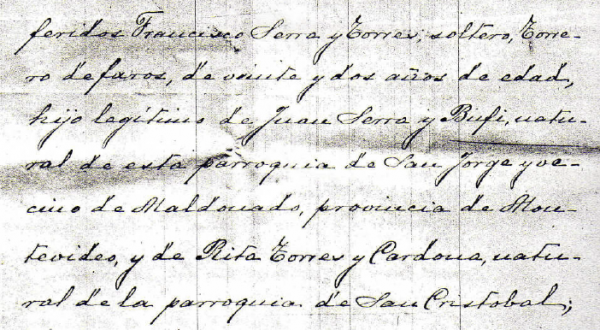 feridos Francisco Serra y Torres; soltero, Torre-
ro de faros, de veinte y dos años de edad,
hijo legítimo de Juan Serra y Bufi, natu-
ral de esta parroquia de San Jorge y ve-
cino de Maldonado, provincia de Mon-
tevideo, y de Rita Torres y Cardona, natu-
ral de la parroquia de San Cristobal;